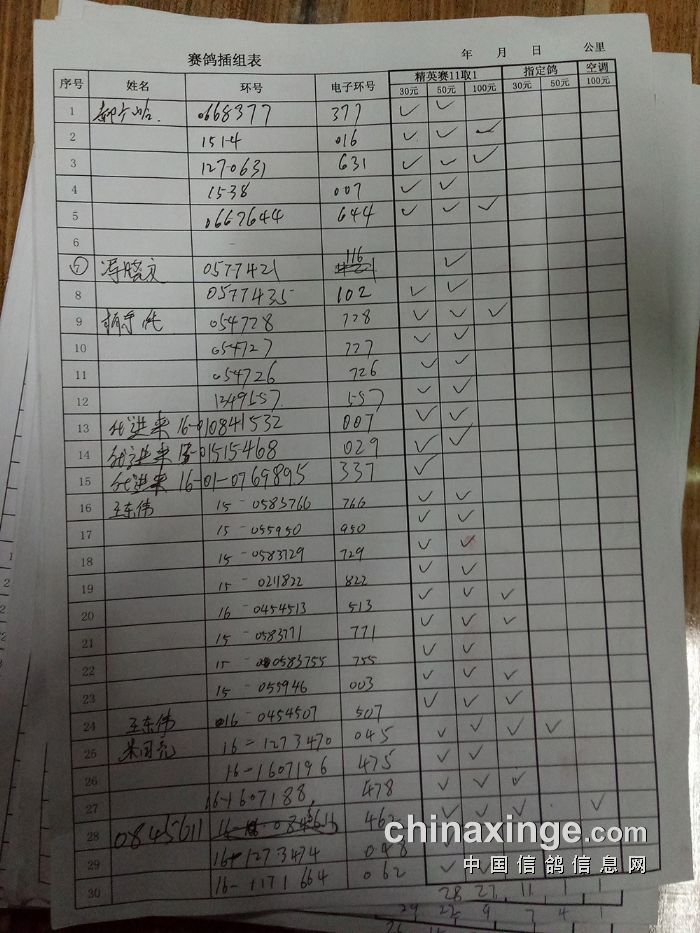 赛鸽插组表 年 月 日 公里
序号 姓名 环号 电子环号 精英赛11取1 指定鸽 空调
30元 50元 100元 30元 50元 100元
1 0668377 377
2 1514 016
3 1270631 631
4 1538 007
5 0667644 644
6
7 0577421 116
8 0577435 102
9 054728 728
10 054727 727
11 054726 726
12 1249557 557
13 代进来 16-010841532 007
14 代进来 01515468 029
15 代进来 16-01-0769895 337
16 王东伟 15-0583766 766
17 15-055950 950
18 15-0583729 729
19 15-0211822 822
20 16-0454513 513
21 15-0583771 771
22 15-0583755 755
23 15-055946 003
24 王东伟 016-0454507 507
25 16-1273470 045
26 16-1607196 475
27 16-1607188 478
28 0845611 462
29 16-1273474 048
30 16-1171664 062
28 27 11 1 1
29 9 3 4 1
chinaxinge.com
中国信鸽信息网